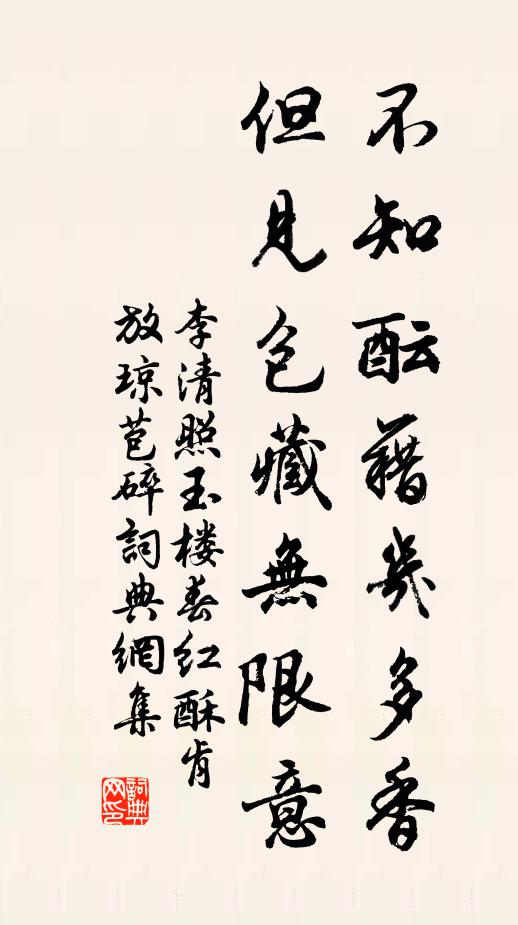 不知酝藉幾多香
但見包藏無限意
李清照玉楼春红酥肯
放琼苞碎詞典網集
詞典网印